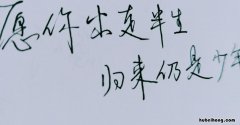 愿你出走半生
归来仍是少年
hubeihong.com